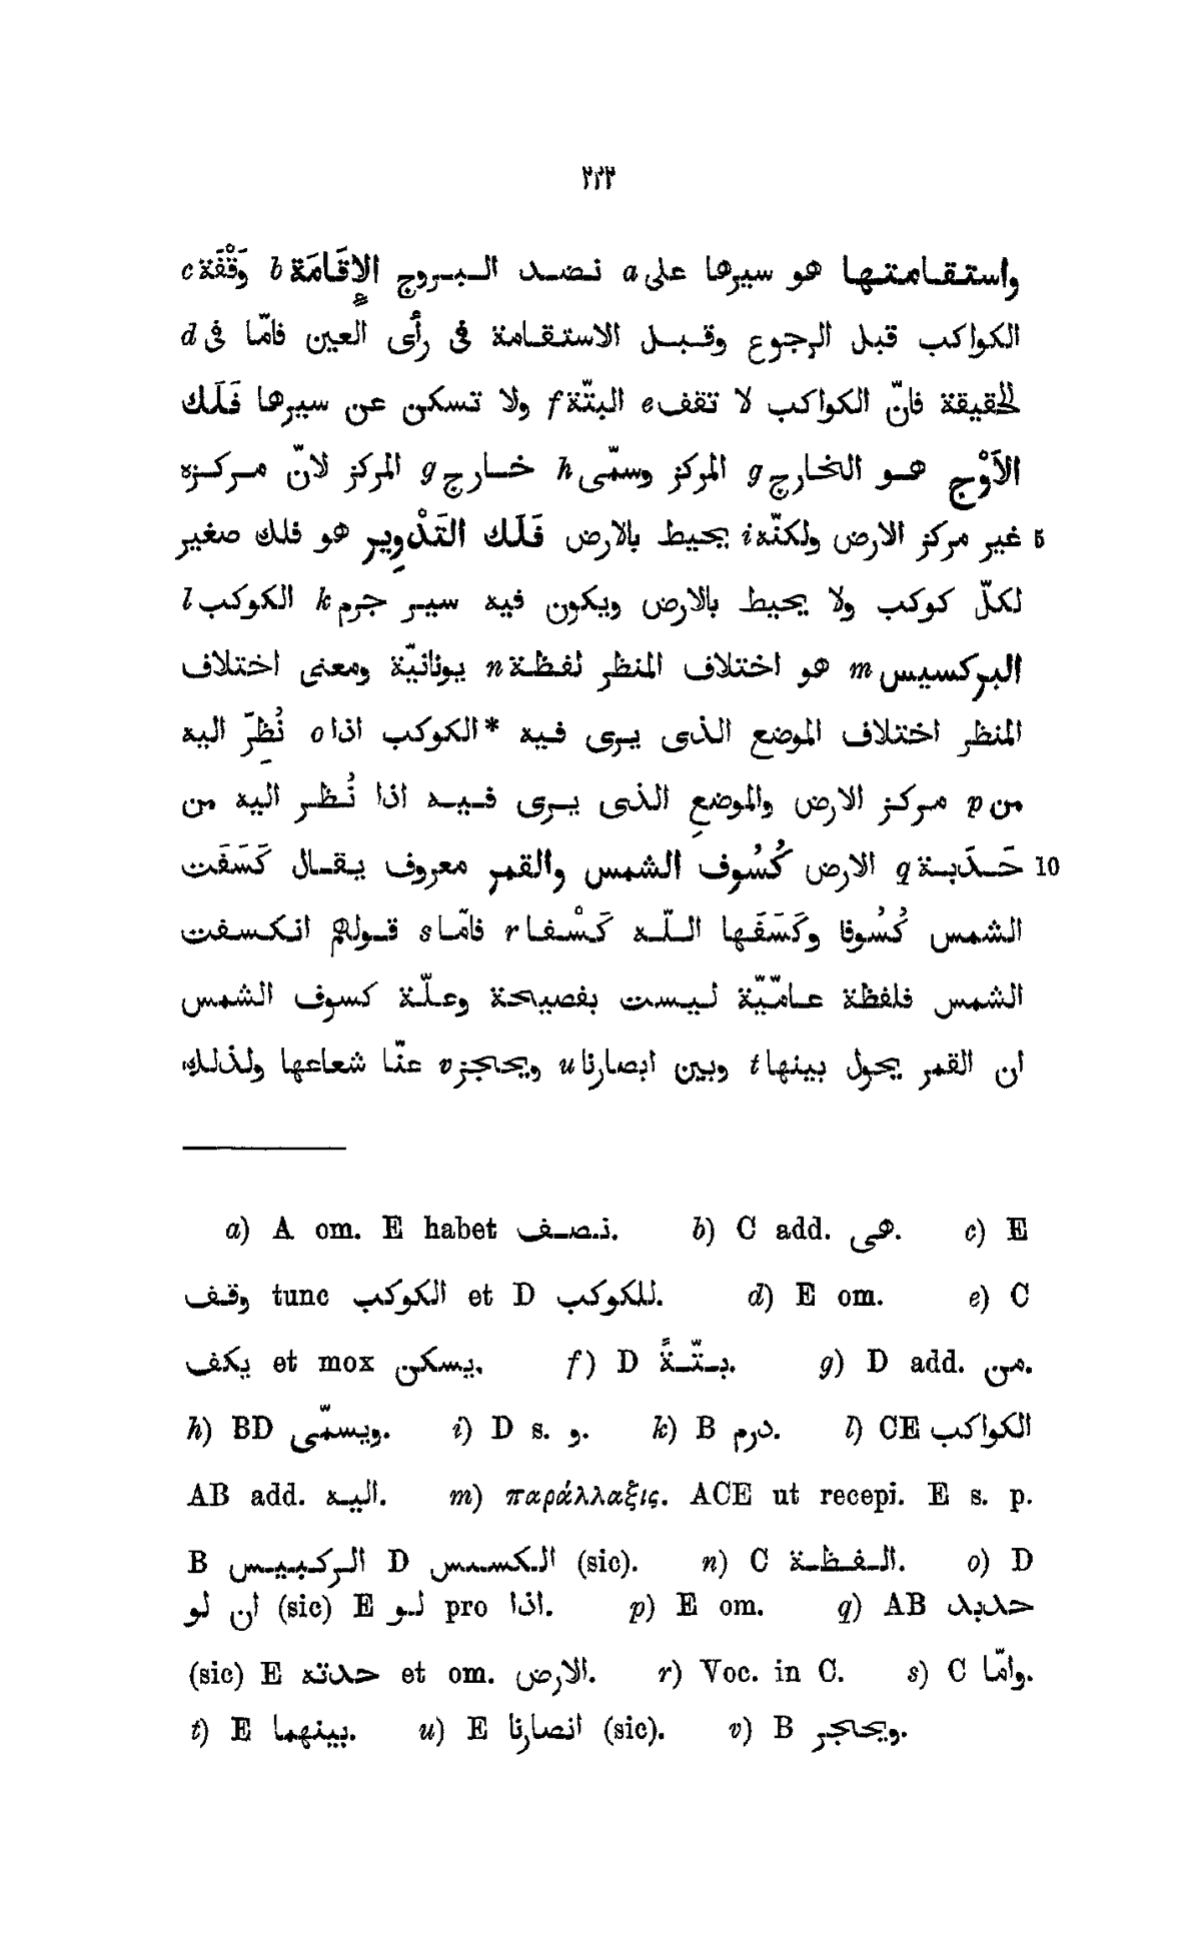 ٢٢٢
واستقامتها هو سيرها على a نضد البروج الإقَامَة b وَقْفَة c
الكواكب قبل الرجوع وقبل الاستقامة فى رأى العين فامّا فى d
الحقيقة فانّ الكواكب لا تقف e البتّة f ولا تسكن عن سيرها فَلَك
الأَوْج هو الخارج g المركز وسمّى h خارج g المركز لانّ مركزه
غير مركز الارض ولكنّه i يحيط بالارض فَلَك التَدْوِير هو فلك صغير 5
لكلّ كوكب ولا يحيط بالارض ويكون فيه سير جرم k الكوكب l
البركسيس m هو اختلاف المنظر لفظة n يونانيّة ومعنى اختلاف
المنظر اختلاف الموضع الذى يرى فيه *الكوكب اذا o نُظِرّ اليه
من p مركز الارض والموضعِ الذى يرى فيه اذا نُظر اليه من
حَدَبة q الارض كُسُوف الشمس والقمر معروف يقال كَسَفَت 10
الشمس كُسُوفا وكَسَفَها اللّه كَسْفا r فامّا s قولهم انكسفت
الشمس فلفظة عامّيّة ليست بفصيحة وعلّة كسوف الشمس
ان القمر يحول بينها t وبين ابصارنا u ويحجز v عنّا شعاعها ولذلك
a) A om. E habet نصف. b) C add. هى. c) E
وقف tunc الكوكب et D للكوكب. d) E om. e) C
يكف et mox يسكن. f) D بتّةً. g) D add. من.
h) BD ويسمّى. i) D s. و. k) B درم. l) CE الكواكب
AB add. اليه. m) παράλλαξις. ACE ut recepi. E s. p.
B الركبيس D الكسس (sic). n) C الفظة. o) D
ان لو (sic) E لو pro اذا. p) E om. q) AB حدبد
(sic) E حدته et om. الارض. r) Voc. in C. s) C وامّا.
t) E بينهما. u) E انصارنا (sic). v) B ويحجر.